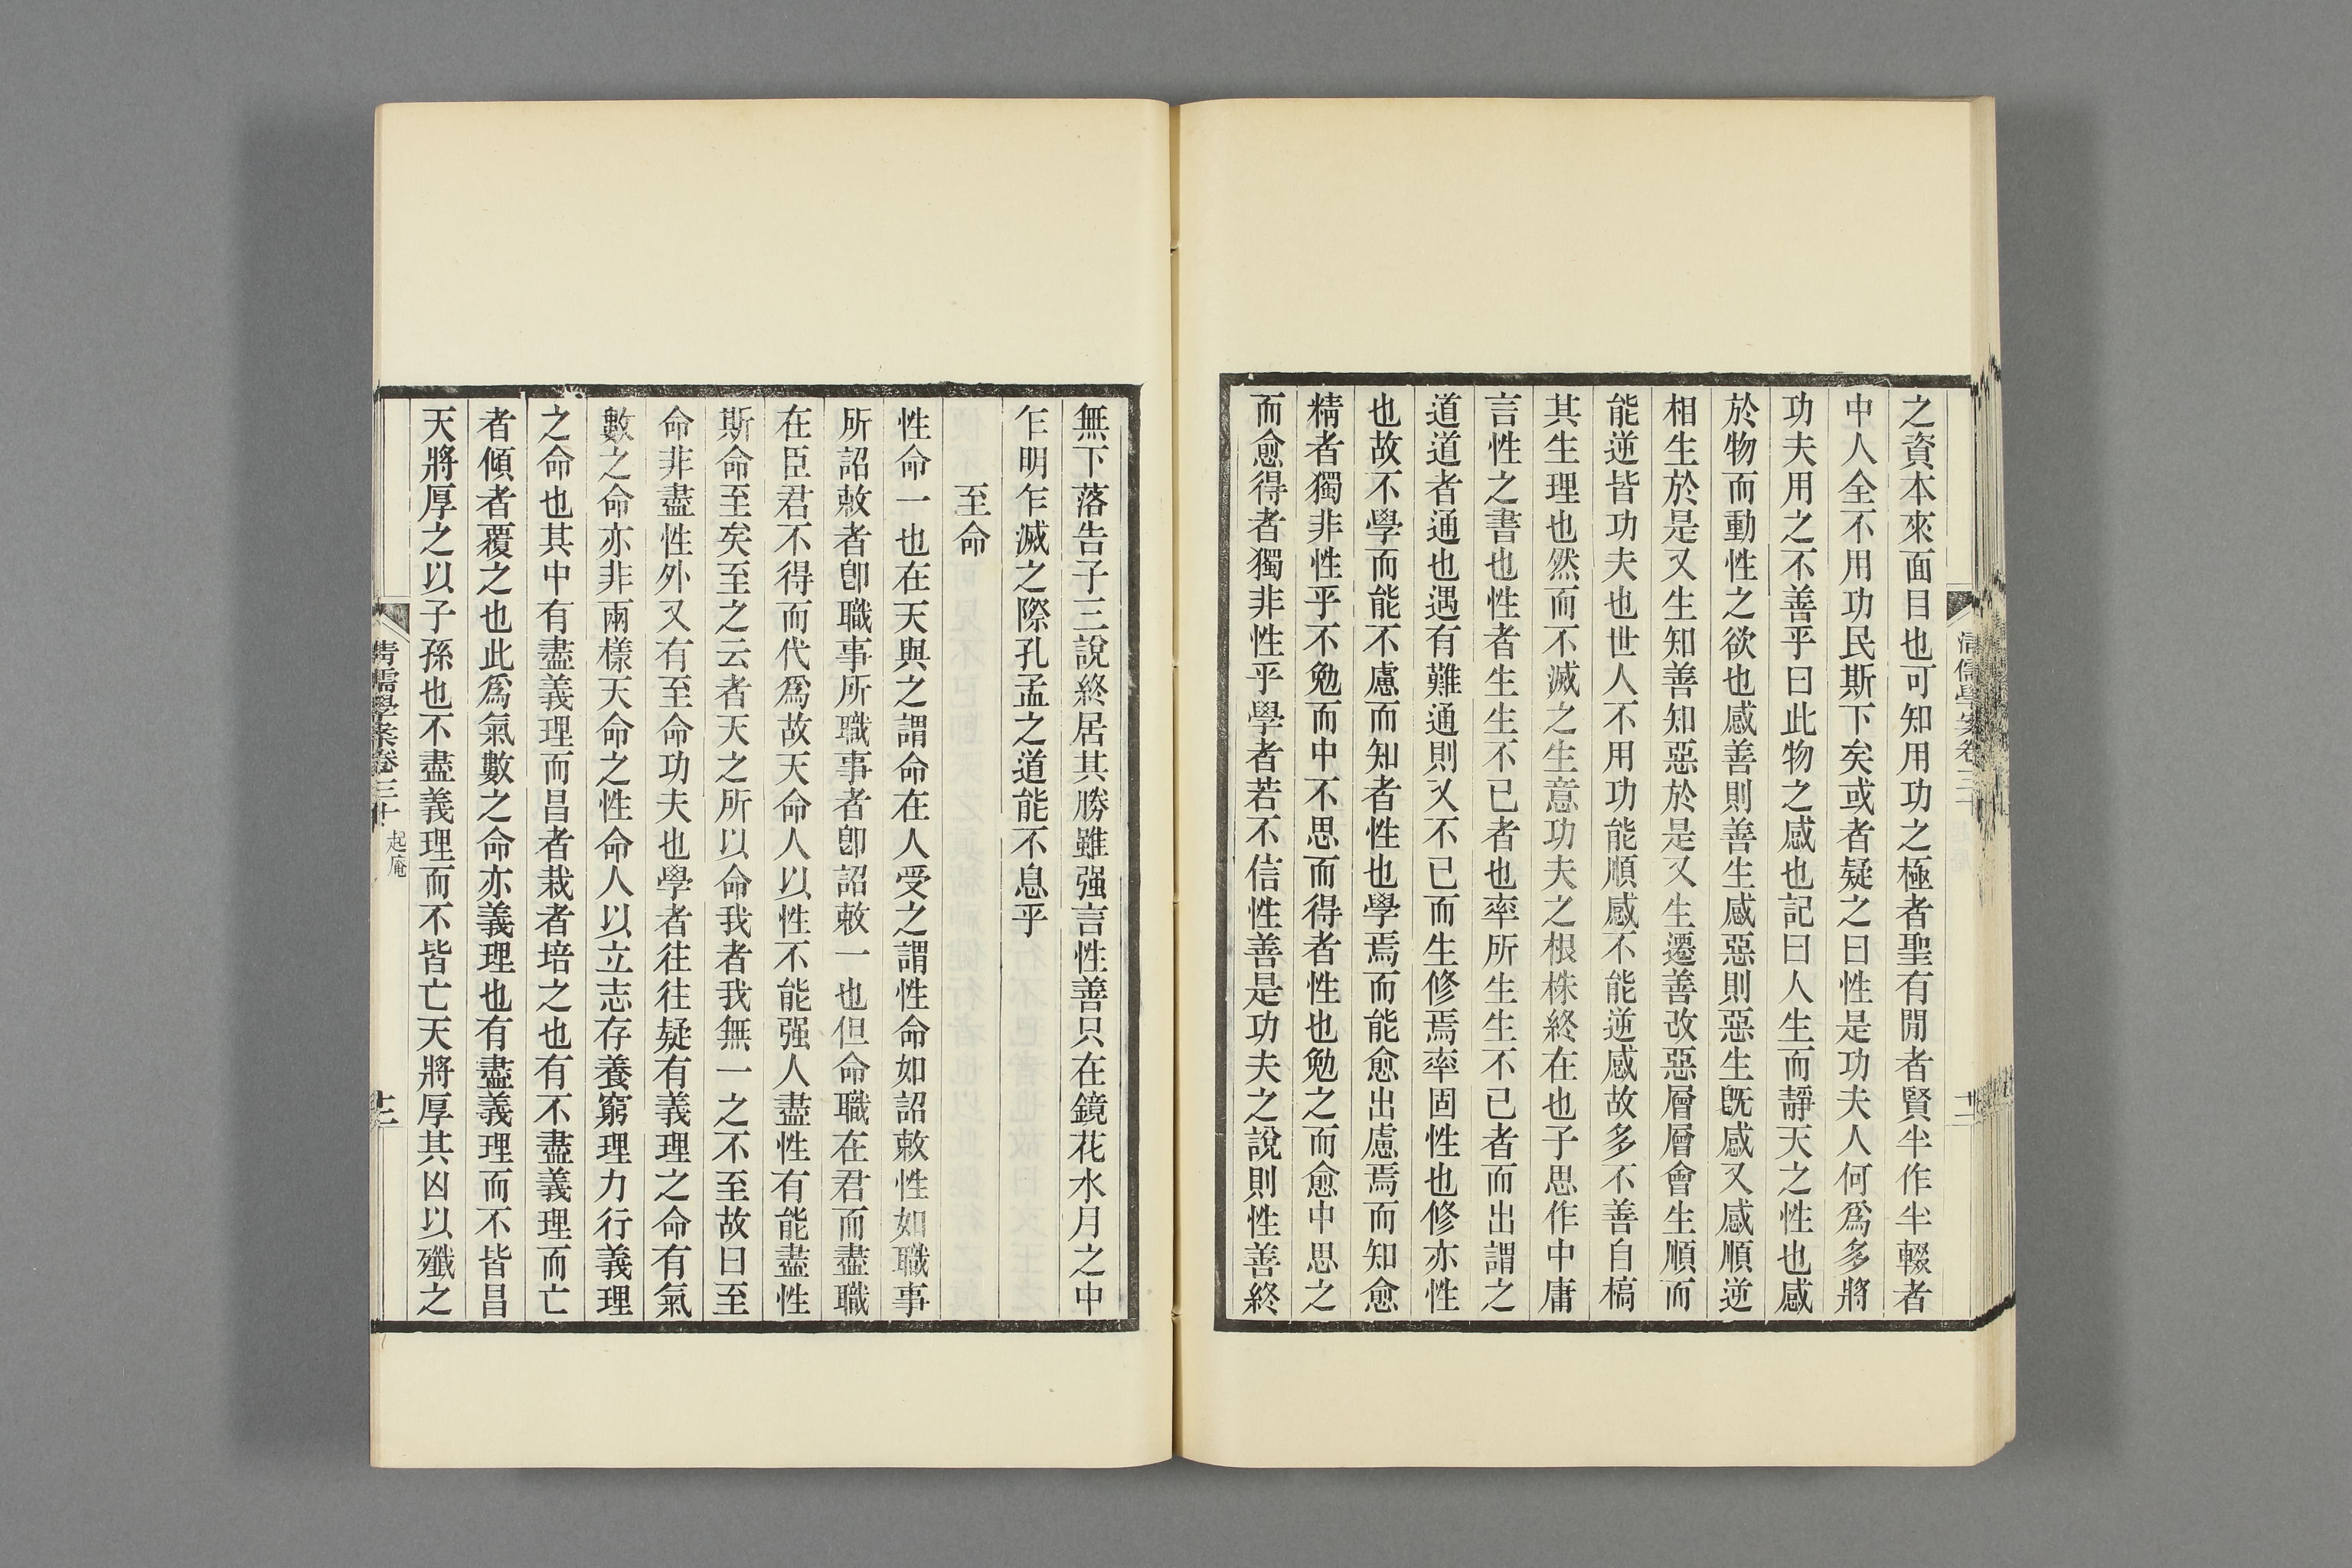 之資本來面目也可知用功之極者聖有閒者賢半作半輟者
中人全不用功民斯下矣或者疑之曰性是功夫人何爲多將
功夫用之不善乎曰此物之感也記曰人生而靜天之性也感
於物而動性之欲也感善則善生感惡則惡生旣感又感順逆
相生於是又生知善知惡於是又生遷善改惡層層會生順而
能逆皆功夫也世人不用功能順感不能逆感故多不善自槁
其生理也然而不滅之生意功夫之根株終在也子思作中庸
言性之書也性者生生不已者也率所生生不已者而出謂之
道道者通也遇有難通則又不已而生修焉率固性也修亦性
也故不學而能不慮而知者性也學焉而能愈出慮焉而知愈
精者獨非性乎不勉而中不思而得者性也勉之而愈中思之
而愈得者獨非性乎學者若不信性善是功夫之說則性善終
清儒學案卷三十
無下落告子三說終居其勝雖强言性善只在鏡花水月之中
乍明乍滅之際孔孟之道能不息乎
至命
性命一也在天與之謂命在人受之謂性命如詔敕性如職事
所詔敕者卽職事所職事者卽詔敕一也但命職在君而盡職
在臣君不得而代爲故天命人以性不能强人盡性有能盡性
斯命至矣至之云者天之所以命我者我無一之不至故曰至
命非盡性外又有至命功夫也學者往往疑有義理之命有氣
數之命亦非兩樣天命之性命人以立志存養窮理力行義理
之命也其中有盡義理而昌者栽者培之也有不盡義理而亡
者傾者覆之也此爲氣數之命亦義理也有盡義理而不皆昌
天將厚之以子孫也不盡義理而不皆亡天將厚其凶以殲之
清儒學案卷三十 起庵